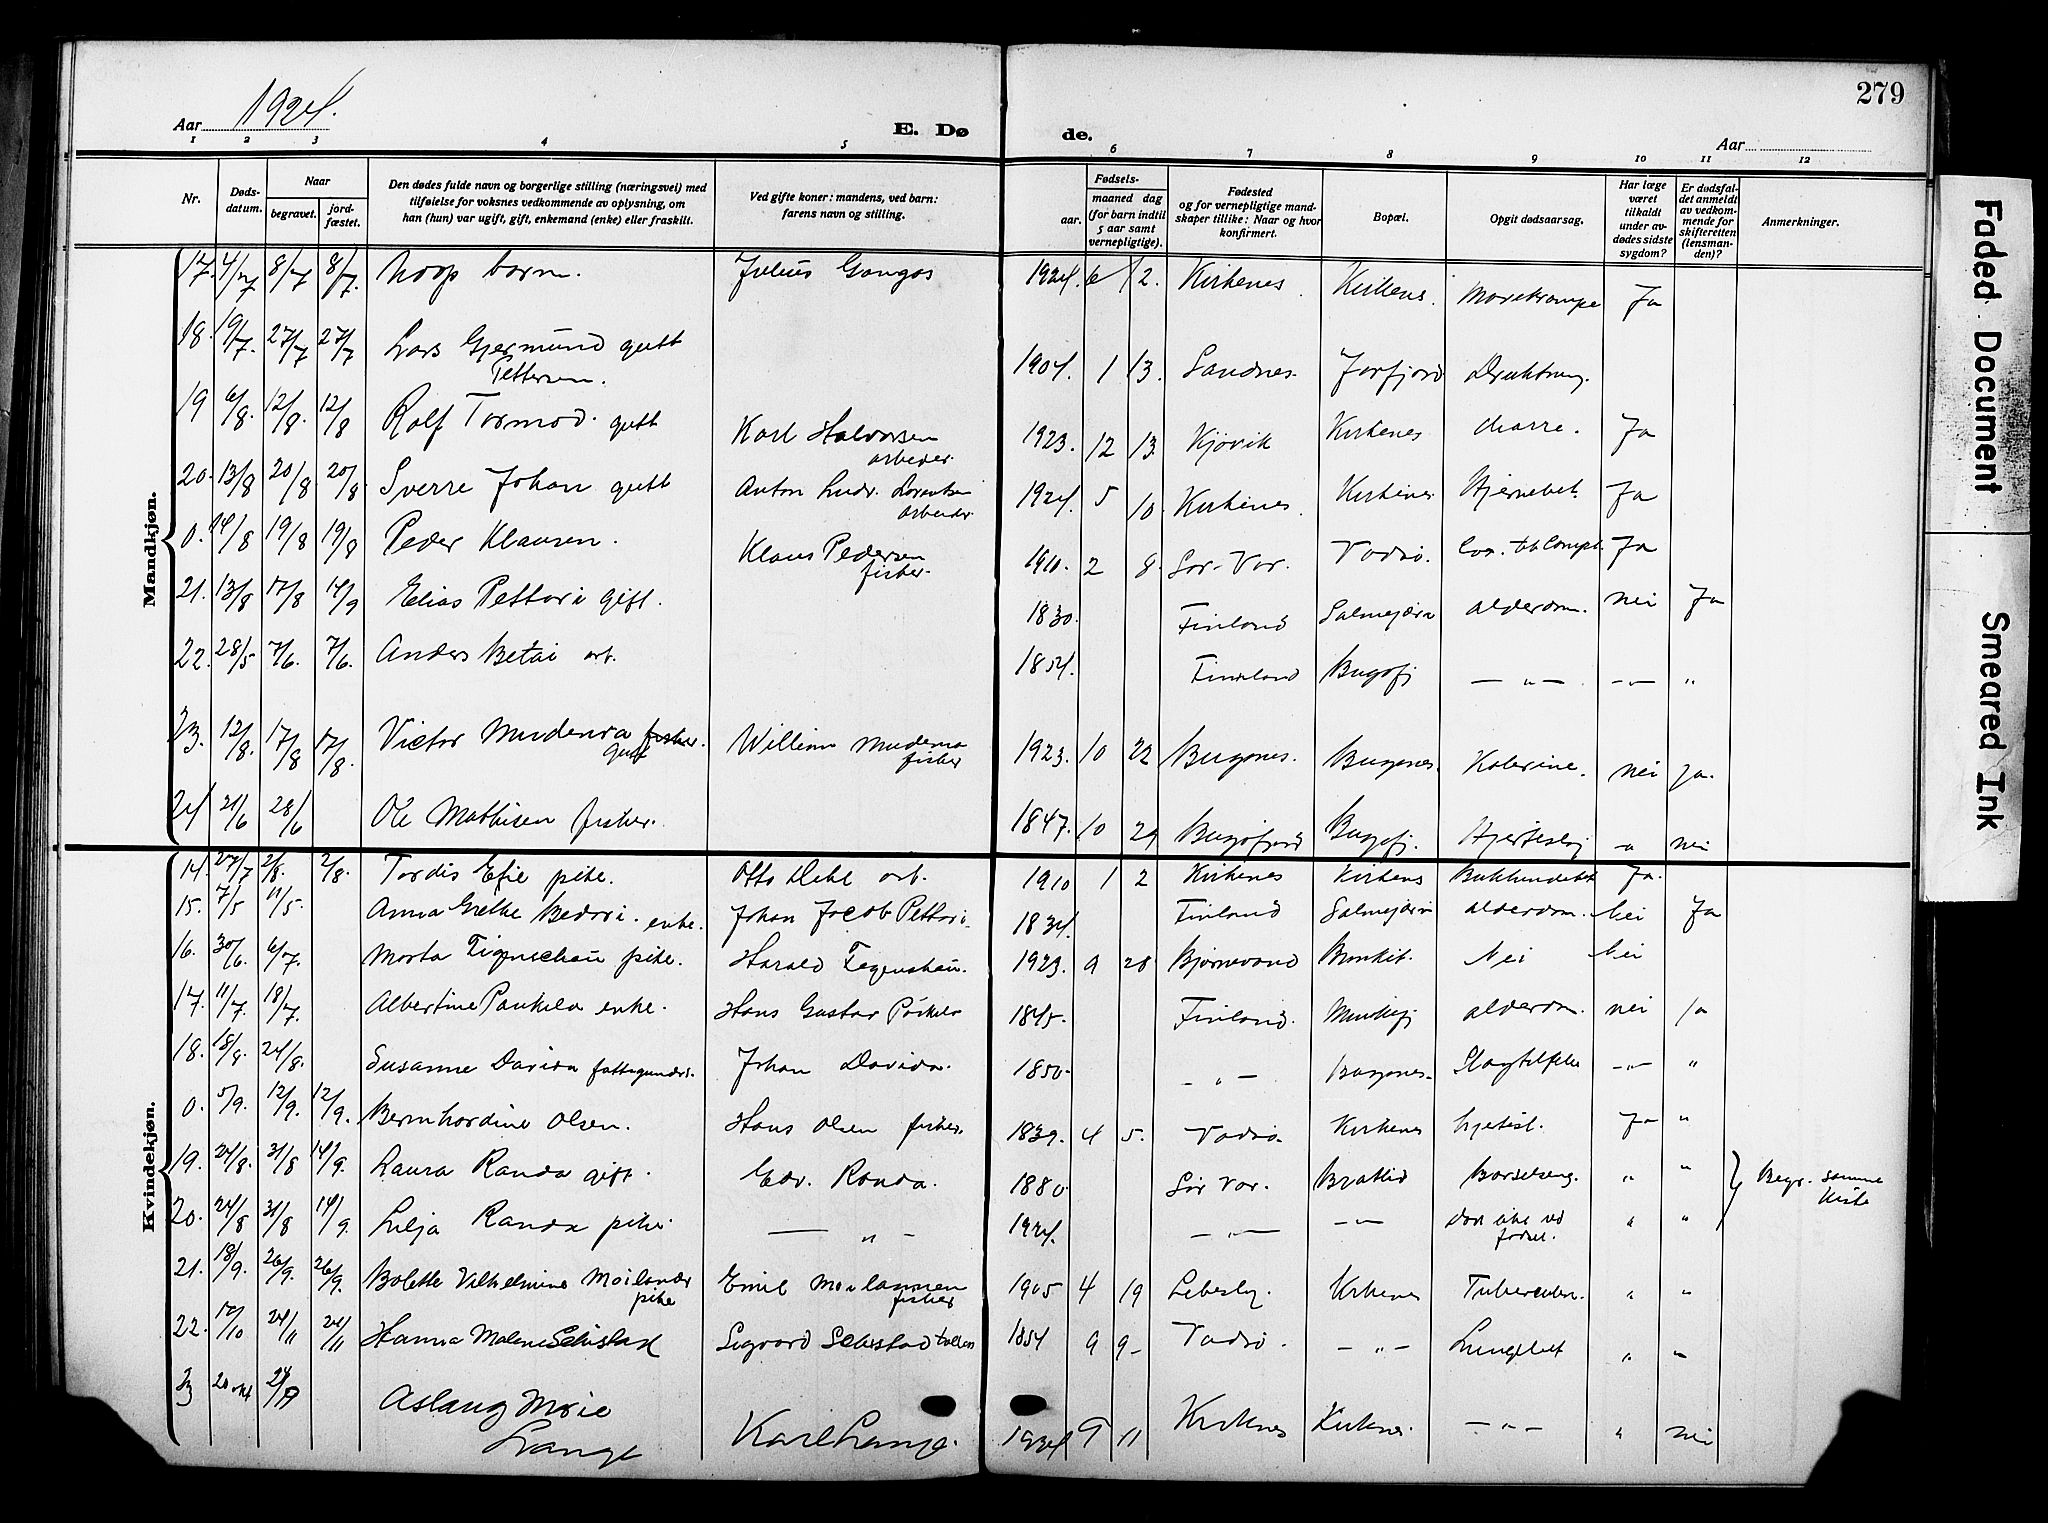 Aar 1924.
E. Dø
de.
Aar
279
1 2 3 4 5 6 7 8 9 10 11 12
Nr.
Døds-datum.
Naar
begravet.
jord-fæstet.
Den dødes fulde navn og borgerlige stilling (næringsvei) med
tilføielse for voksnes vedkommende av oplysning, om
han (hun) var ugift, gift, enkemand (enke) eller fraskilt.
Ved gifte koner: mandens, ved barn:
farens navn og stilling.
Fødsels-
aar.
maaned dag
(for barn indtil
5 aar samt
vernepligtige).
Fødested
og for vernepligtige mand-
skaper tillike: Naar og hvor
konfirmert.
Bopæl.
Opgit dødsaarsag.
Har læge
været
tilkaldt
under av-
dødes sidste
sygdom?
Er dødsfal-
det anmeldt
av vedkom-
mende for
skifteretten
(lensman-
den)?
Anmerkninger.
Mandkjøn.
17. 4/7 8/7 8/7. barn. Julius 1924. 6 12. Kirkenes Kirkens. Ja
18. 19/7. 27/7 27/7 Lars Gjermund gutt
Pettersen. 1904. 1 13. Sandnes. Jarfjord Drukning.
19 6/8. 12/8. 12/8 Rolf Tormod. gutt Karl Halvorsen
arbeder. 1923. 12 13. Kirkenes Ja
20. 13/8 20/8 20/8. Sverre Johan gutt Anton Ludv. Lorentsen
arbeider. 1924. 5 10. Kirkenes. Kirkenes. Hjernebet. Ja
0. 14/8 19/8 19/8 Peder Klausen. Klaus Pedersen
fisker. 1910. 2 8. Sør-Var. Vadsø. Ja
21. 13/8 17/8 14/9 Elias Pettari gift. 1830. Finland Salmejærvi alderdom. nei Ja
22. 28/5 7/6. 7/6. Anders arb. 1854. Finnland Bugøfj — „ — — „ — „
23. 12/8. 17/8 17/8. Victor fisker.
gutt William
fisker 1923. 10 22 Bugønes. Bugønes. nei Ja.
24 21/6 28/6 Ole Mathisen fisker. 1847. 10 29 Bugøfjord Bugøfj. nei
Kvindekjøn.
14. 27/7 2/8. 2/8. Tordis Efie pike. Otto Dehl arb. 1910 1 2 Kirkenes Kirkens Ja.
15. 7/5 11/5. Anna Grethe enke. Johan Jacob Pettari. 1834. Finland Salmejærvi alderdom. Nei Ja
16. 30/6. 6/7. Marta pike. Harald 1923. 9 28 Bjørnevand Nei Nei
17. 11/7 18/7. Albertine enke. Hans Gustav 1845. Finland. alderdom. nei Ja
18. 18/8. 24/8. Susanne Davida Johan Davida. 1850. — „ — Bugønes. — „ — „
0. 5/9. 12/9. 12/9. Bernhardine Olsen. Hans Olsen fisker. 1839. 4 5. Vadsø. Kirkenes Ja „
19. 24/8. 31/8 14/9. Laura Randa gift. Edv. Randa. 1880. Sør Var. Brattli Barselseng. „ „ Begr. samme
kiste
20. 24/8 31/8 14/9. Lilja Randa pike. — „ — 1924. — „ — — „ — død ved
fødsel. „ „
21. 18/9. 26/9. 26/9. Bolette Vilhelmine Moilanen
pike Emil Moilannen
fisker 1905 4 19 Lebesby. Kirkenes „ „
22. 10 24/11 24/11 Hanna Malene Sebistad Sigvard 1854 9 9 Vadsø. — „ — „ „
20 okt Aslaug Marie
Lange Karl Lange. 1924 9 11 Kirkenes Kirkenes. — „ — „ nei
Faded Document
Smeared Ink